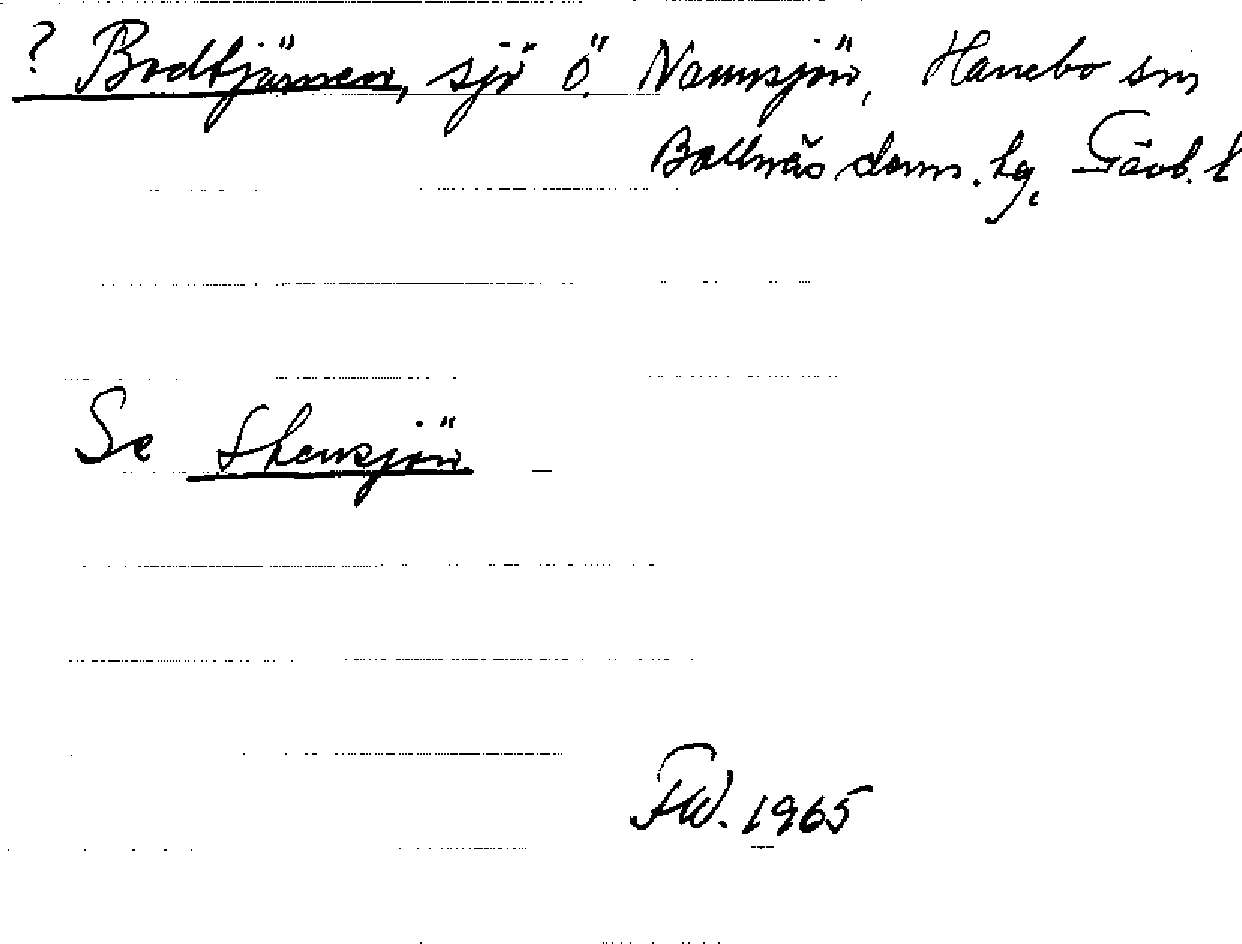 ? Bodtjärnen, sjö Ö. Nannsjön, Hanebo sn
Bollnäs doms. lg, Gävl. l
Se Stensjön
FW. 1965